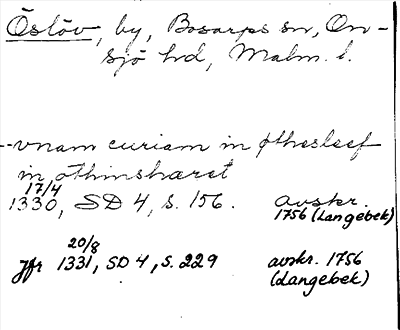 Östöv, by, Bosarps sn, On-
sjö hd, Malm. l.
--vnam curiam in øthesleef
in othinshæret
17/4
1330, SD 4, s. 156. avskr.
1756 (Langebek)
20/8
jfr 1331, SD 4, s. 229 avskr. 1756
(Langebek)